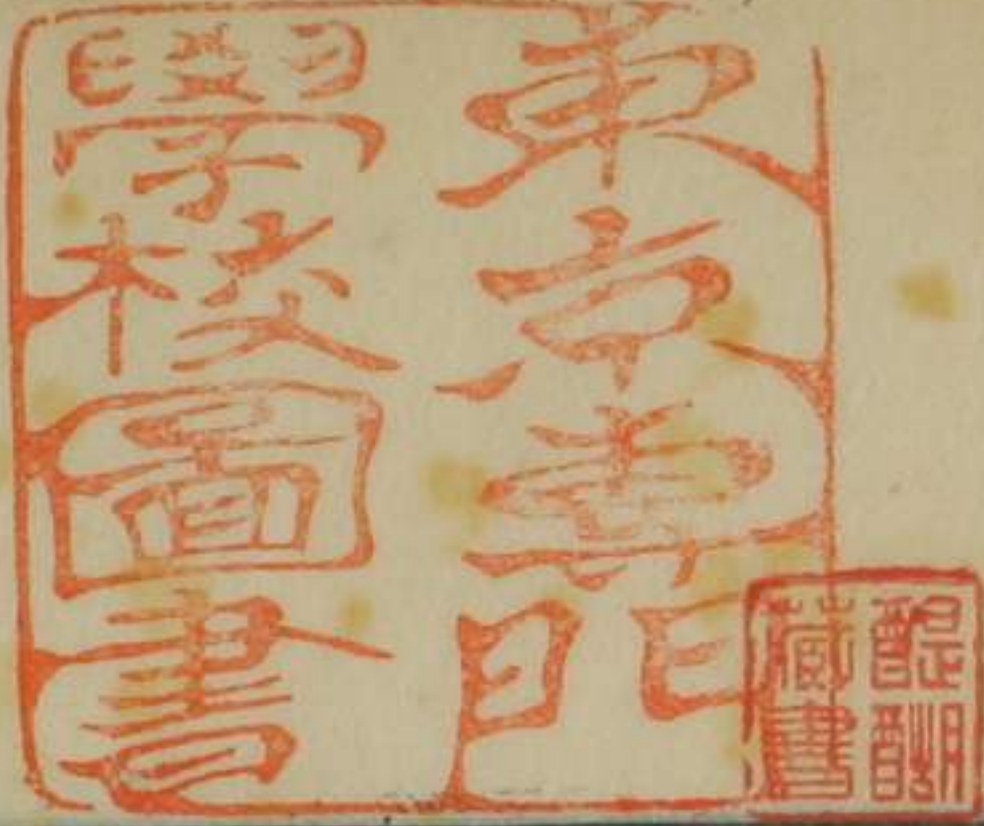 東京專門
學校圖書
醍醐
蔵書